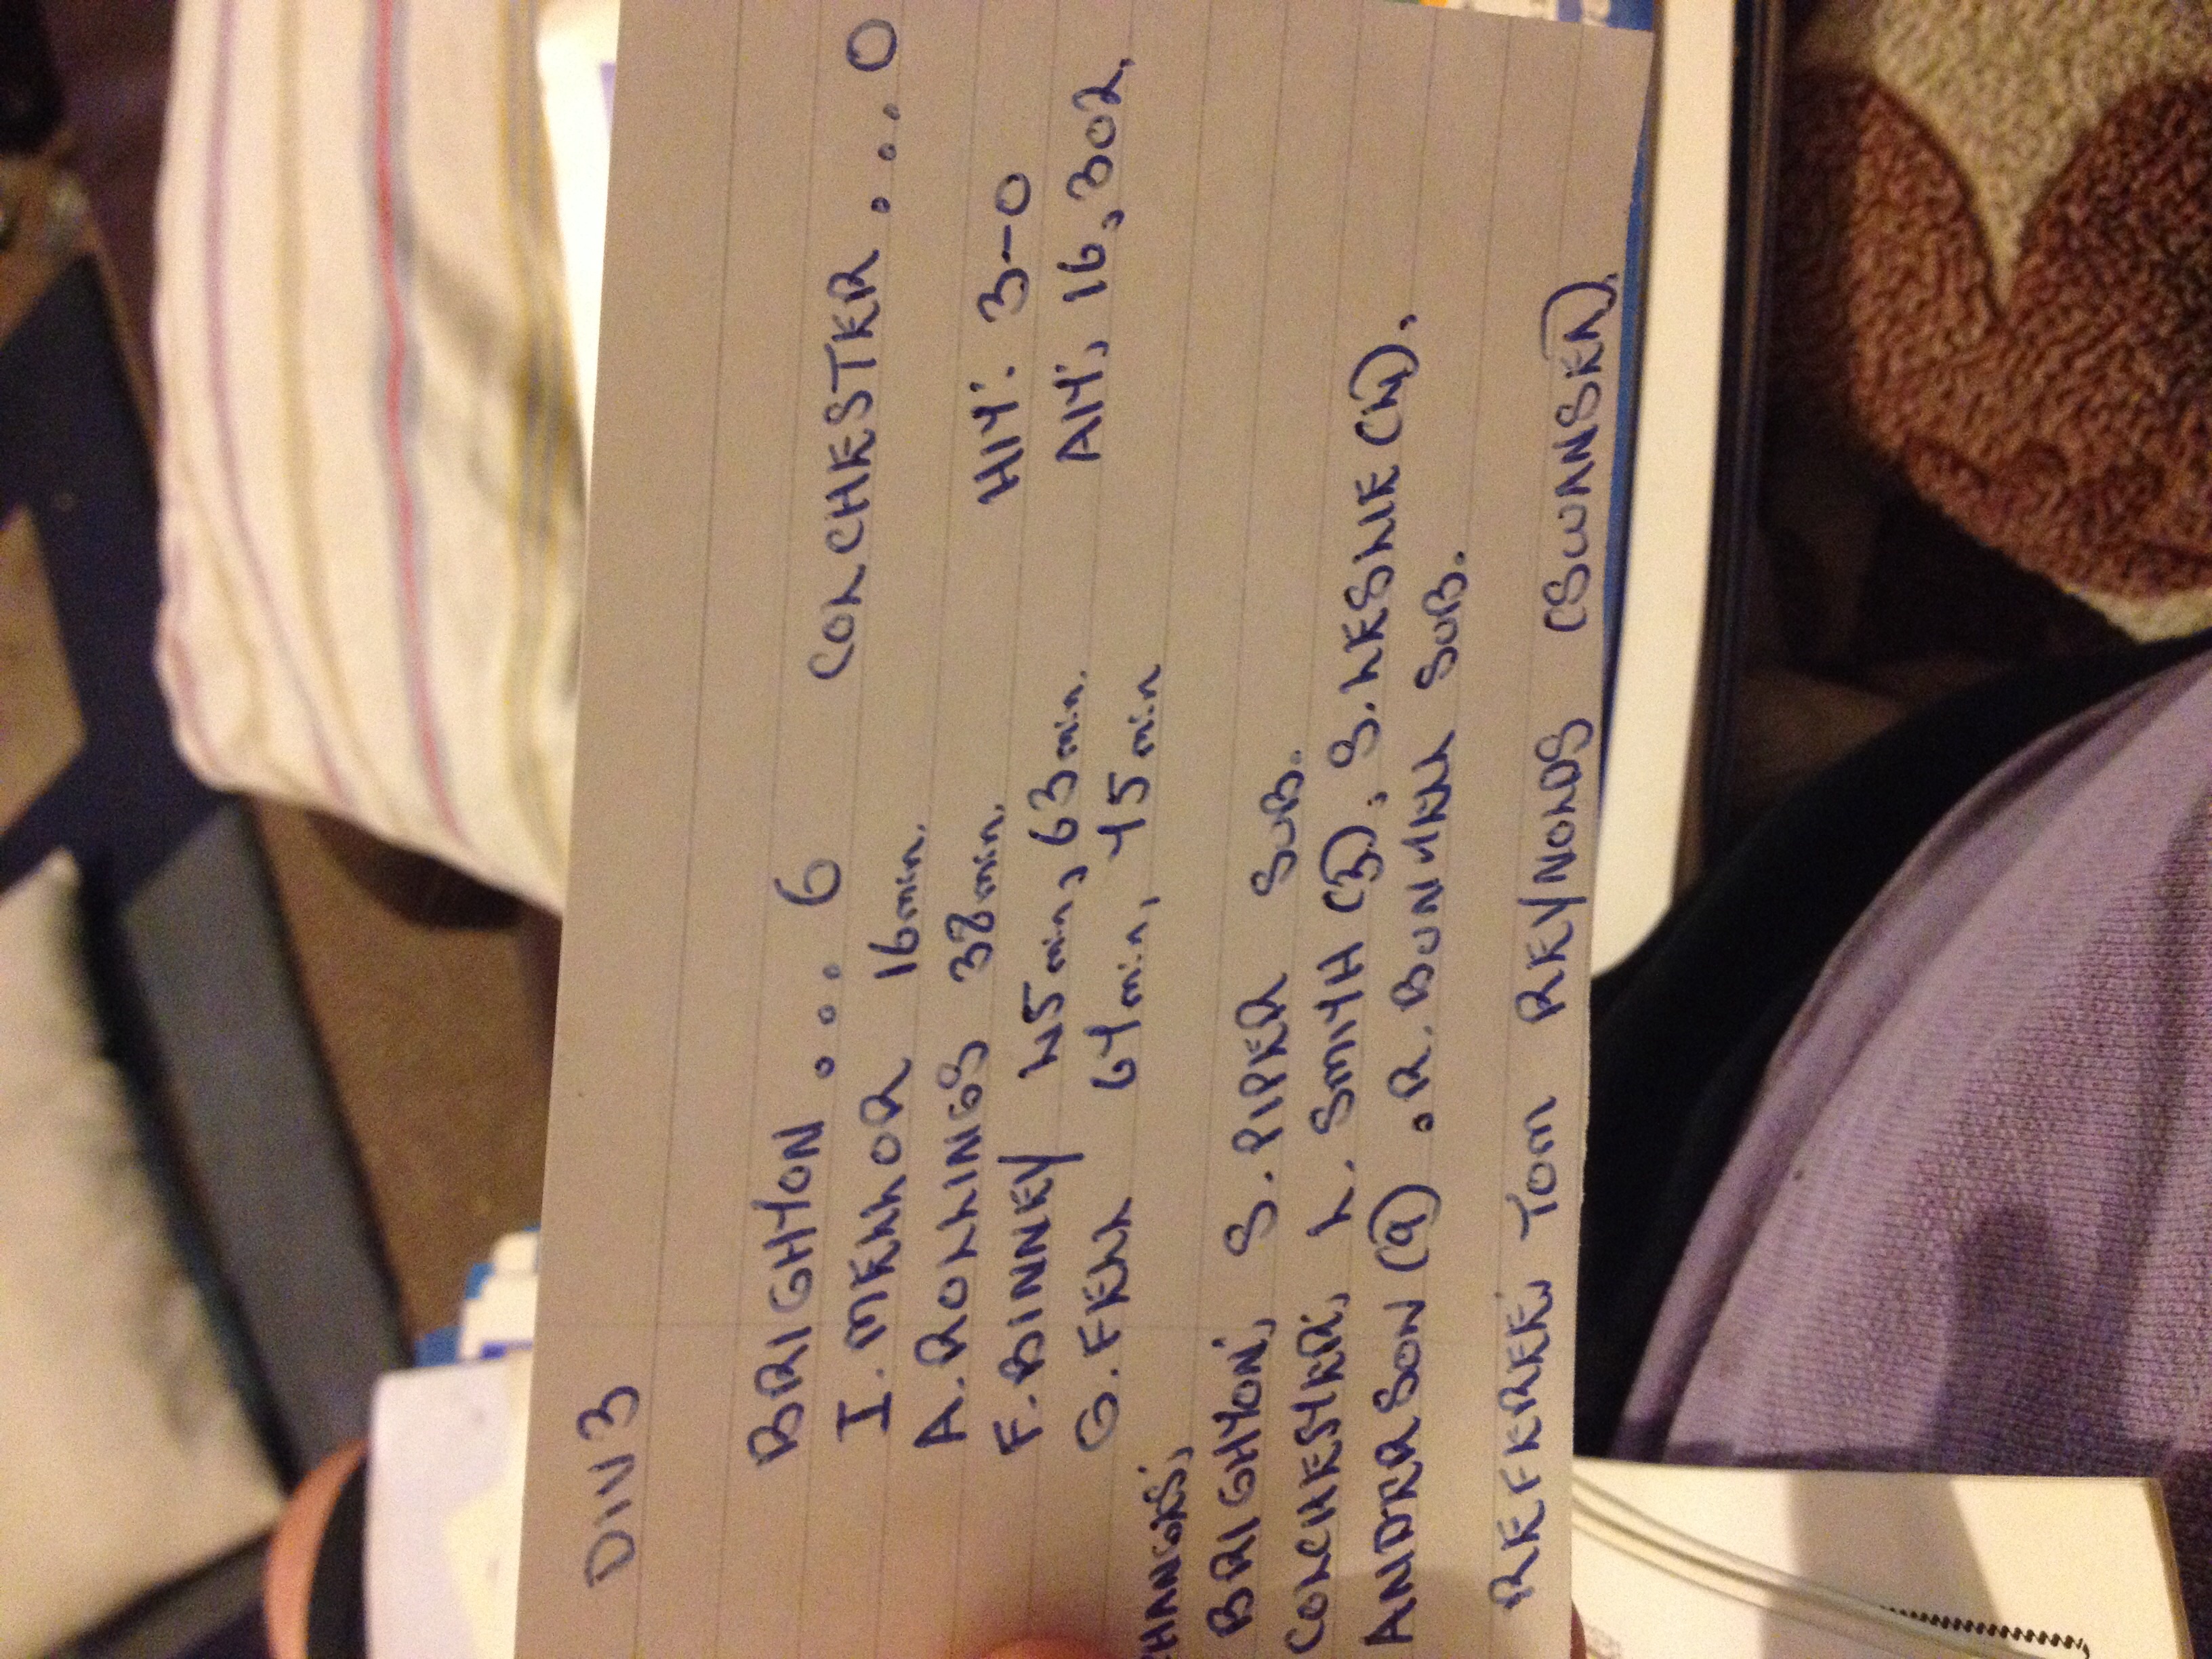 DIV 3
BRIGHTON .... 6 COLCHESTER .... 0
I. MELLOR 16min.
A. ROLLINGS 38min. H/T: 3-0
F. BINNEY 45min, 63min. ATT, 16,302.
G. FELL 67min, 75min
HANGES,
BRIGHTON, S. PIPER SUB.
COLCHESTER, L. SMITH (3), S. LESLIE (4),
ANDERSON (9). R. BUNKELL SUB.
REFEREE, TOM REYNOLDS (SWANSEA).